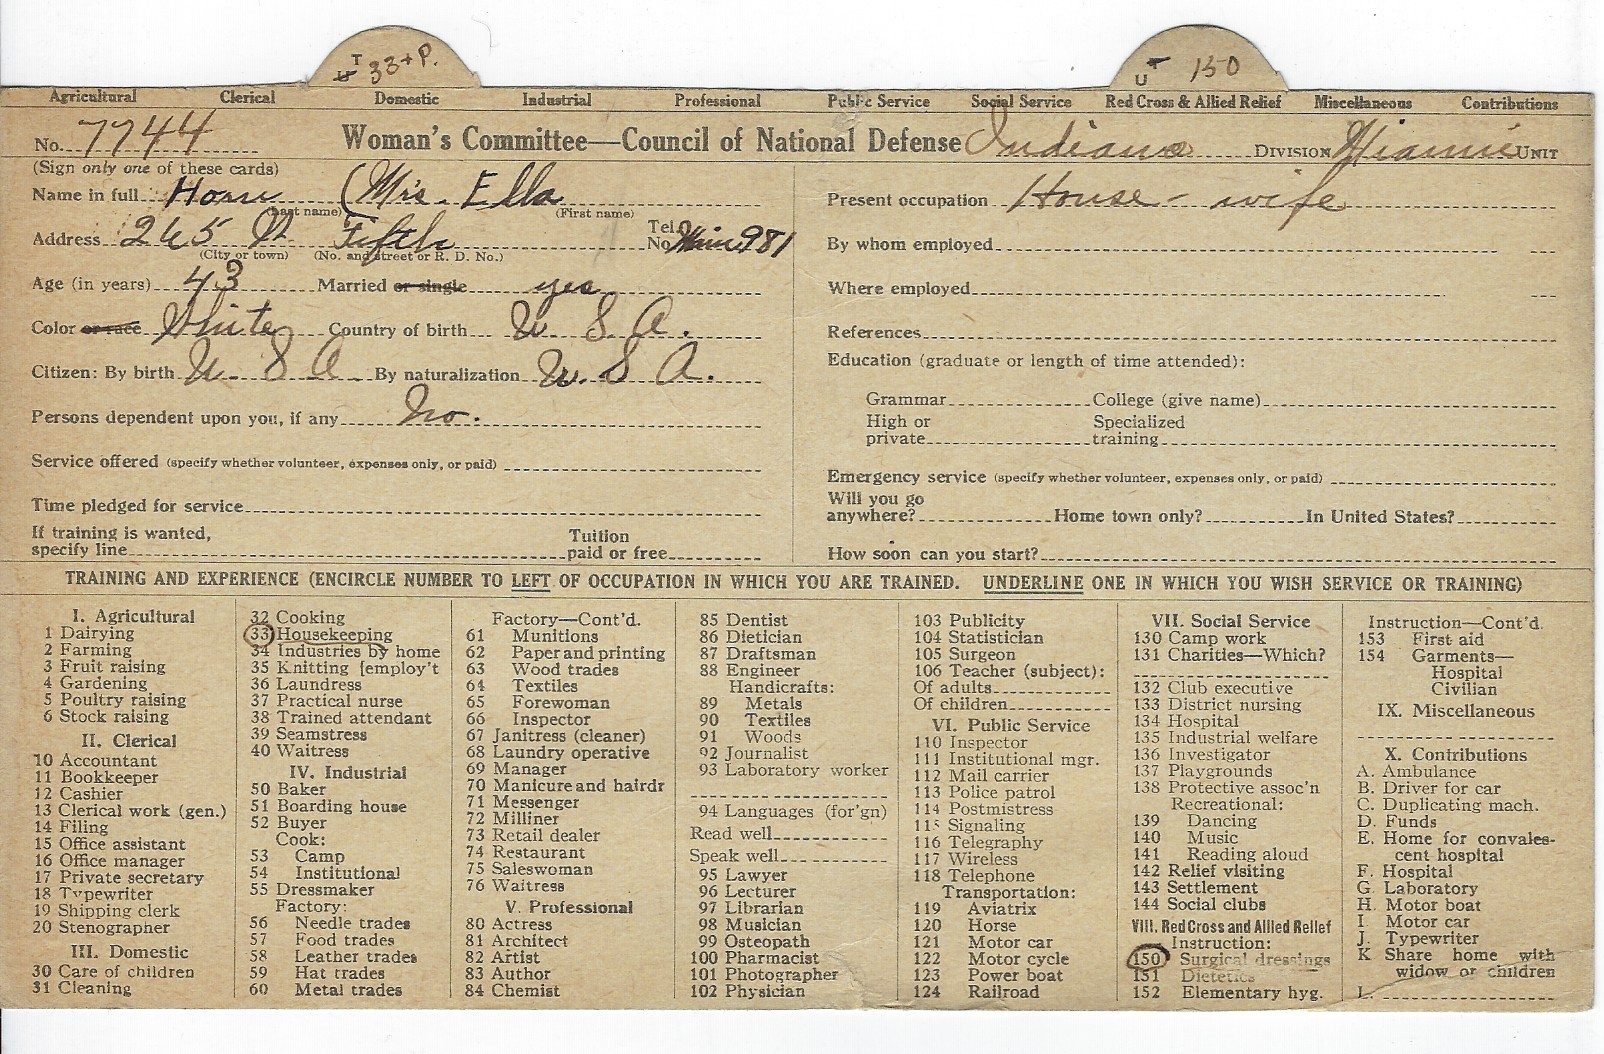 T
U 33+P.
T
U 150
Agricultural Clerical Domestic Industrial Professional Public Service Social Service Red Cross & Allied Relief Miscellaneous Contributions
No. 7744 Woman's Committee—Council of National Defense Indiana DIVISION Miami UNIT
(Sign only one of these cards)
Name in full Horn (Mrs. Ella
(Last name) (First name)
Address 265 W Fifth Tel. No. Main 981
(City or town) (No. and street or R. D. No.)
Age (in years) 43 Married or single yes
Color or race White Country of birth U S A.
Citizen: By birth U. S A By naturalization U. S A.
Persons dependent upon you, if any No.
Service offered (specify whether volunteer, expenses only, or paid)
Time pledged for service
If training is wanted,
specify line
Tuition
paid or free
Present occupation House-wife
By whom employed
Where employed
References
Education (graduate or length of time attended):
Grammar College (give name)
High or
private
Specialized
training
Emergency service (specify whether volunteer, expenses only, or paid)
Will you go
anywhere? Home town only? In United States?
How soon can you start?
TRAINING AND EXPERIENCE (ENCIRCLE NUMBER TO LEFT OF OCCUPATION IN WHICH YOU ARE TRAINED. UNDERLINE ONE IN WHICH YOU WISH SERVICE OR TRAINING)
I. Agricultural
1 Dairying
2 Farming
3 Fruit raising
4 Gardening
5 Poultry raising
6 Stock raising
II. Clerical
10 Accountant
11 Bookkeeper
12 Cashier
13 Clerical work (gen.)
14 Filing
15 Office assistant
16 Office manager
17 Private secretary
18 Typewriter
19 Shipping clerk
20 Stenographer
III. Domestic
30 Care of children
31 Cleaning
32 Cooking
33 Housekeeping
34 Industries by home
35 Knitting [employ't
36 Laundress
37 Practical nurse
38 Trained attendant
39 Seamstress
40 Waitress
IV. Industrial
50 Baker
51 Boarding house
52 Buyer
Cook:
53 Camp
54 Institutional
55 Dressmaker
Factory:
56 Needle trades
57 Food trades
58 Leather trades
59 Hat trades
60 Metal trades
Factory—Cont'd.
61 Munitions
62 Paper and printing
63 Wood trades
64 Textiles
65 Forewoman
66 Inspector
67 Janitress (cleaner)
68 Laundry operative
69 Manager
70 Manicure and hairdr
71 Messenger
72 Milliner
73 Retail dealer
74 Restaurant
75 Saleswoman
76 Waitress
V. Professional
80 Actress
81 Architect
82 Artist
83 Author
84 Chemist
85 Dentist
86 Dietician
87 Draftsman
88 Engineer
Handicrafts:
89 Metals
90 Textiles
91 Woods
92 Journalist
93 Laboratory worker
94 Languages (for'gn)
Read well
Speak well
95 Lawyer
96 Lecturer
97 Librarian
98 Musician
99 Osteopath
100 Pharmacist
101 Photographer
102 Physician
103 Publicity
104 Statistician
105 Surgeon
106 Teacher (subject):
Of adults
Of children
VI. Public Service
110 Inspector
111 Institutional mgr.
112 Mail carrier
113 Police patrol
114 Postmistress
115 Signaling
116 Telegraphy
117 Wireless
118 Telephone
Transportation:
119 Aviatrix
120 Horse
121 Motor car
122 Motor cycle
123 Power boat
124 Railroad
VII. Social Service
130 Camp work
131 Charities—Which?
132 Club executive
133 District nursing
134 Hospital
135 Industrial welfare
136 Investigator
137 Playgrounds
138 Protective assoc'n
Recreational:
139 Dancing
140 Music
141 Reading aloud
142 Relief visiting
143 Settlement
144 Social clubs
VIII. Red Cross and Allied Relief
Instruction:
150 Surgical dressings
151 Dietetics
152 Elementary hyg.
Instruction—Cont'd.
153 First aid
154 Garments—
Hospital
Civilian
IX. Miscellaneous
X. Contributions
A. Ambulance
B. Driver for car
C. Duplicating mach.
D. Funds
E. Home for convales-
cent hospital
F. Hospital
G. Laboratory
H. Motor boat
I. Motor car
J. Typewriter
K Share home with
widow or children
L.